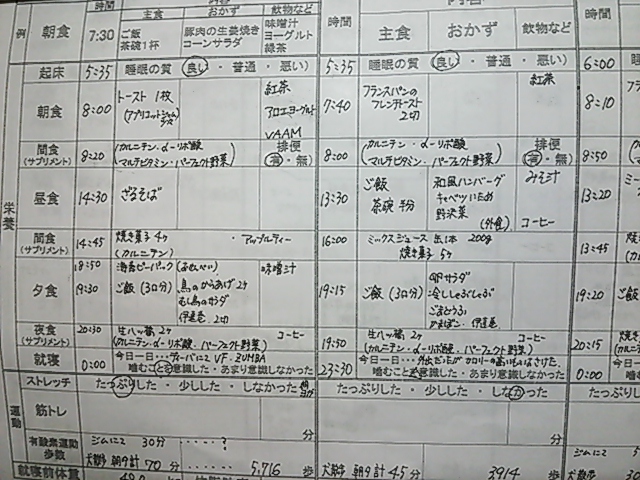 例 朝食 時間 主食 おかず 飲物など
7:30 ご飯 茶碗1杯 豚肉の生姜焼き コーンサラダ 味噌汁 ヨーグルト 緑茶
時間 主食 おかず 飲物など
時間
栄養
起床 5:35 睡眠の質 (良い・普通・悪い)
5:35 睡眠の質 (良い・普通・悪い)
6:00
朝食 8:00 トースト 1枚
紅茶
アロエヨーグルト
VAAM
7:40 フランスパンの
フレンチトースト
2切
紅茶
8:10
間食 (サプリメント) 8:20 (カルニチン・α-リポ酸
マルチビタミン・パーフェクト野菜)
排便
(有・無)
8:00 (カルニチン・α-リポ酸
マルチビタミン・パーフェクト野菜)
排便
(有・無)
8:50
昼食 14:30 ざるそば
13:30 ご飯
茶碗 半分
和風ハンバーグ
キャベツ
野沢菜
(外食)
みそ汁
コーヒー
13:20
間食 (サプリメント) 14:45 焼き菓子 4ヶ
(カルニチン)
・アップルティー
16:00 ミックスジュース 缶1本 200g
焼き菓子 5ヶ
13:45
夕食 18:50
味噌汁
19:30 ご飯 (3口分) 鳥のからあげ 2ヶ
むし鳥のサラダ
伊達巻 2切
19:15 ご飯 (3口分)
サラダ
冷しゃぶしゃぶ
ごまとうふ
かまぼこ・伊達巻
19:20
夜食 (サプリメント) 20:30 生八ッ橋 2ヶ コーヒー
(カルニチン・α-リポ酸・パーフェクト野菜)
19:50 生八ッ橋 2ヶ コーヒー
(カルニチン・α-リポ酸・パーフェクト野菜)
20:15
就寝 0:00 今日一日…
ZUMBA
噛むことを意識した・あまり意識しなかった
23:30 今日一日…
噛むことを意識した・あまり意識しなかった
0:00
運動
ストレッチ たっぷりした・少しした・しなかった
たっぷりした・少しした・しなかった
たっぷり
筋トレ 分 分
有酸素運動 歩数 ジムにて 30分 ……?
犬散歩 朝夕計 70分 5,716 歩
犬散歩 朝夕計 45分 3914 歩
ジムにて
犬散歩
就寝前体重